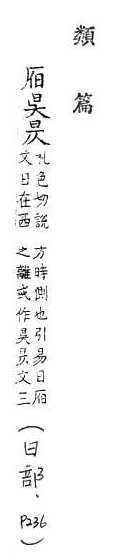 類篇
昗昃札色切說文日在西方時側也引易日之離或作昗昃文三(日部、P236)